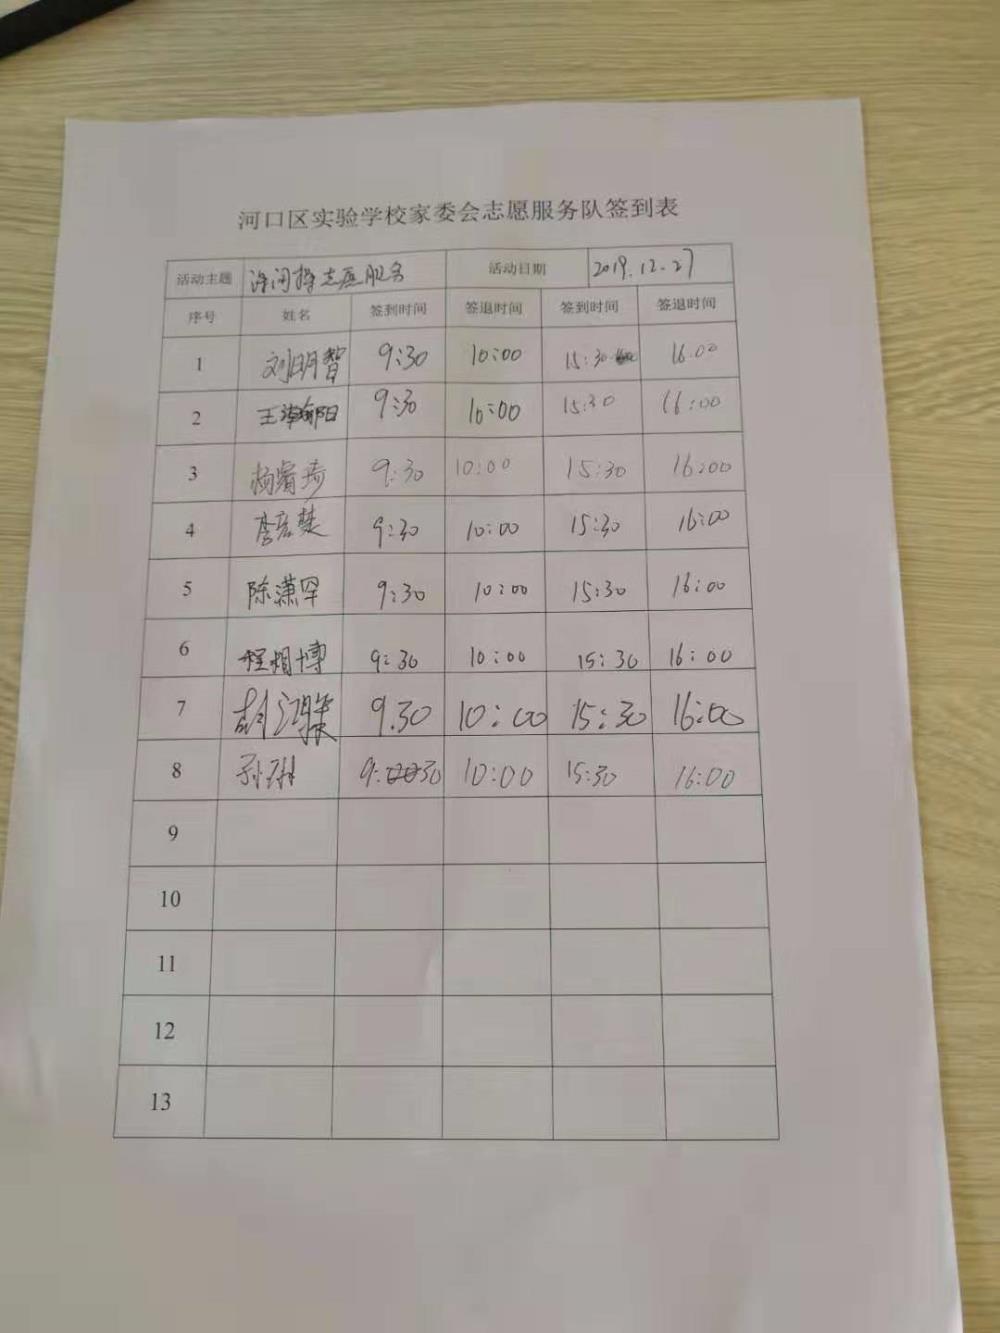 河口区实验学校家委会志愿服务队签到表
活动主题 志愿服务 活动日期 2019.12.27
序号 姓名 签到时间 签退时间 签到时间 签退时间
1 刘明智 9:30 10:00 15:30 16.00
2 王 阳 9:30 10:00 15:30 16:00
3 杨睿琦 9:30 10:00 15:30 16:00
4 9:30 10:00 15:30 16:00
5 陈潇罕 9:30 10:00 15:30 16:00
6 程相博 9:30 10:00 15:30 16:00
7 胡 9.30 10:00 15:30 16:00
8 孙琳 9:30 10:00 15:30 16:00
9
10
11
12
13